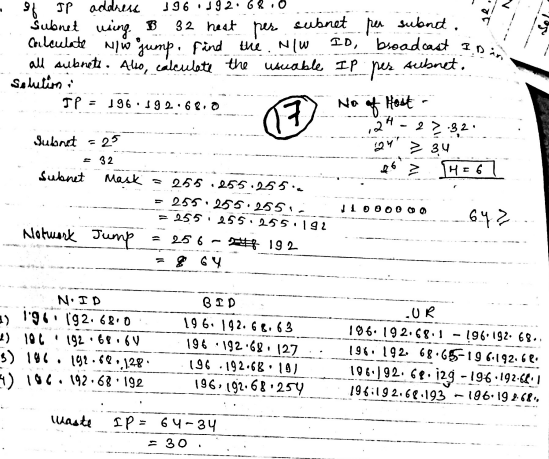 If IP address 196.192.68.0
Subnet using B 32 host per subnet per subnet.
Calculate N/W jump. Find the N/W ID, broadcast ID in
all subnets. Also, calculate the usuable IP per subnet.
Solution:
IP = 196.192.68.0
17
No of Host -
2^H - 2 ≥ 32.
2^H ≥ 34
2^6 ≥ H = 6
Subnet = 2^5
= 32
Subnet Mask = 255.255.255.
= 255.255.255. 11000000 64 ≥
= 255.255.255.192
Network Jump = 256 - 192
= 64
N.ID BID UR
1) 196.192.68.0 196.192.68.63 196.192.68.1 - 196.192.68.
2) 196.192.68.64 196.192.68.127 196.192.68.65 - 196.192.68.
3) 196.192.68.128 196.192.68.191 196.192.68.129 - 196.192.68.1
4) 196.192.68.192 196.192.68.254 196.192.68.193 - 196.192.68.
Waste IP = 64-34
= 30.